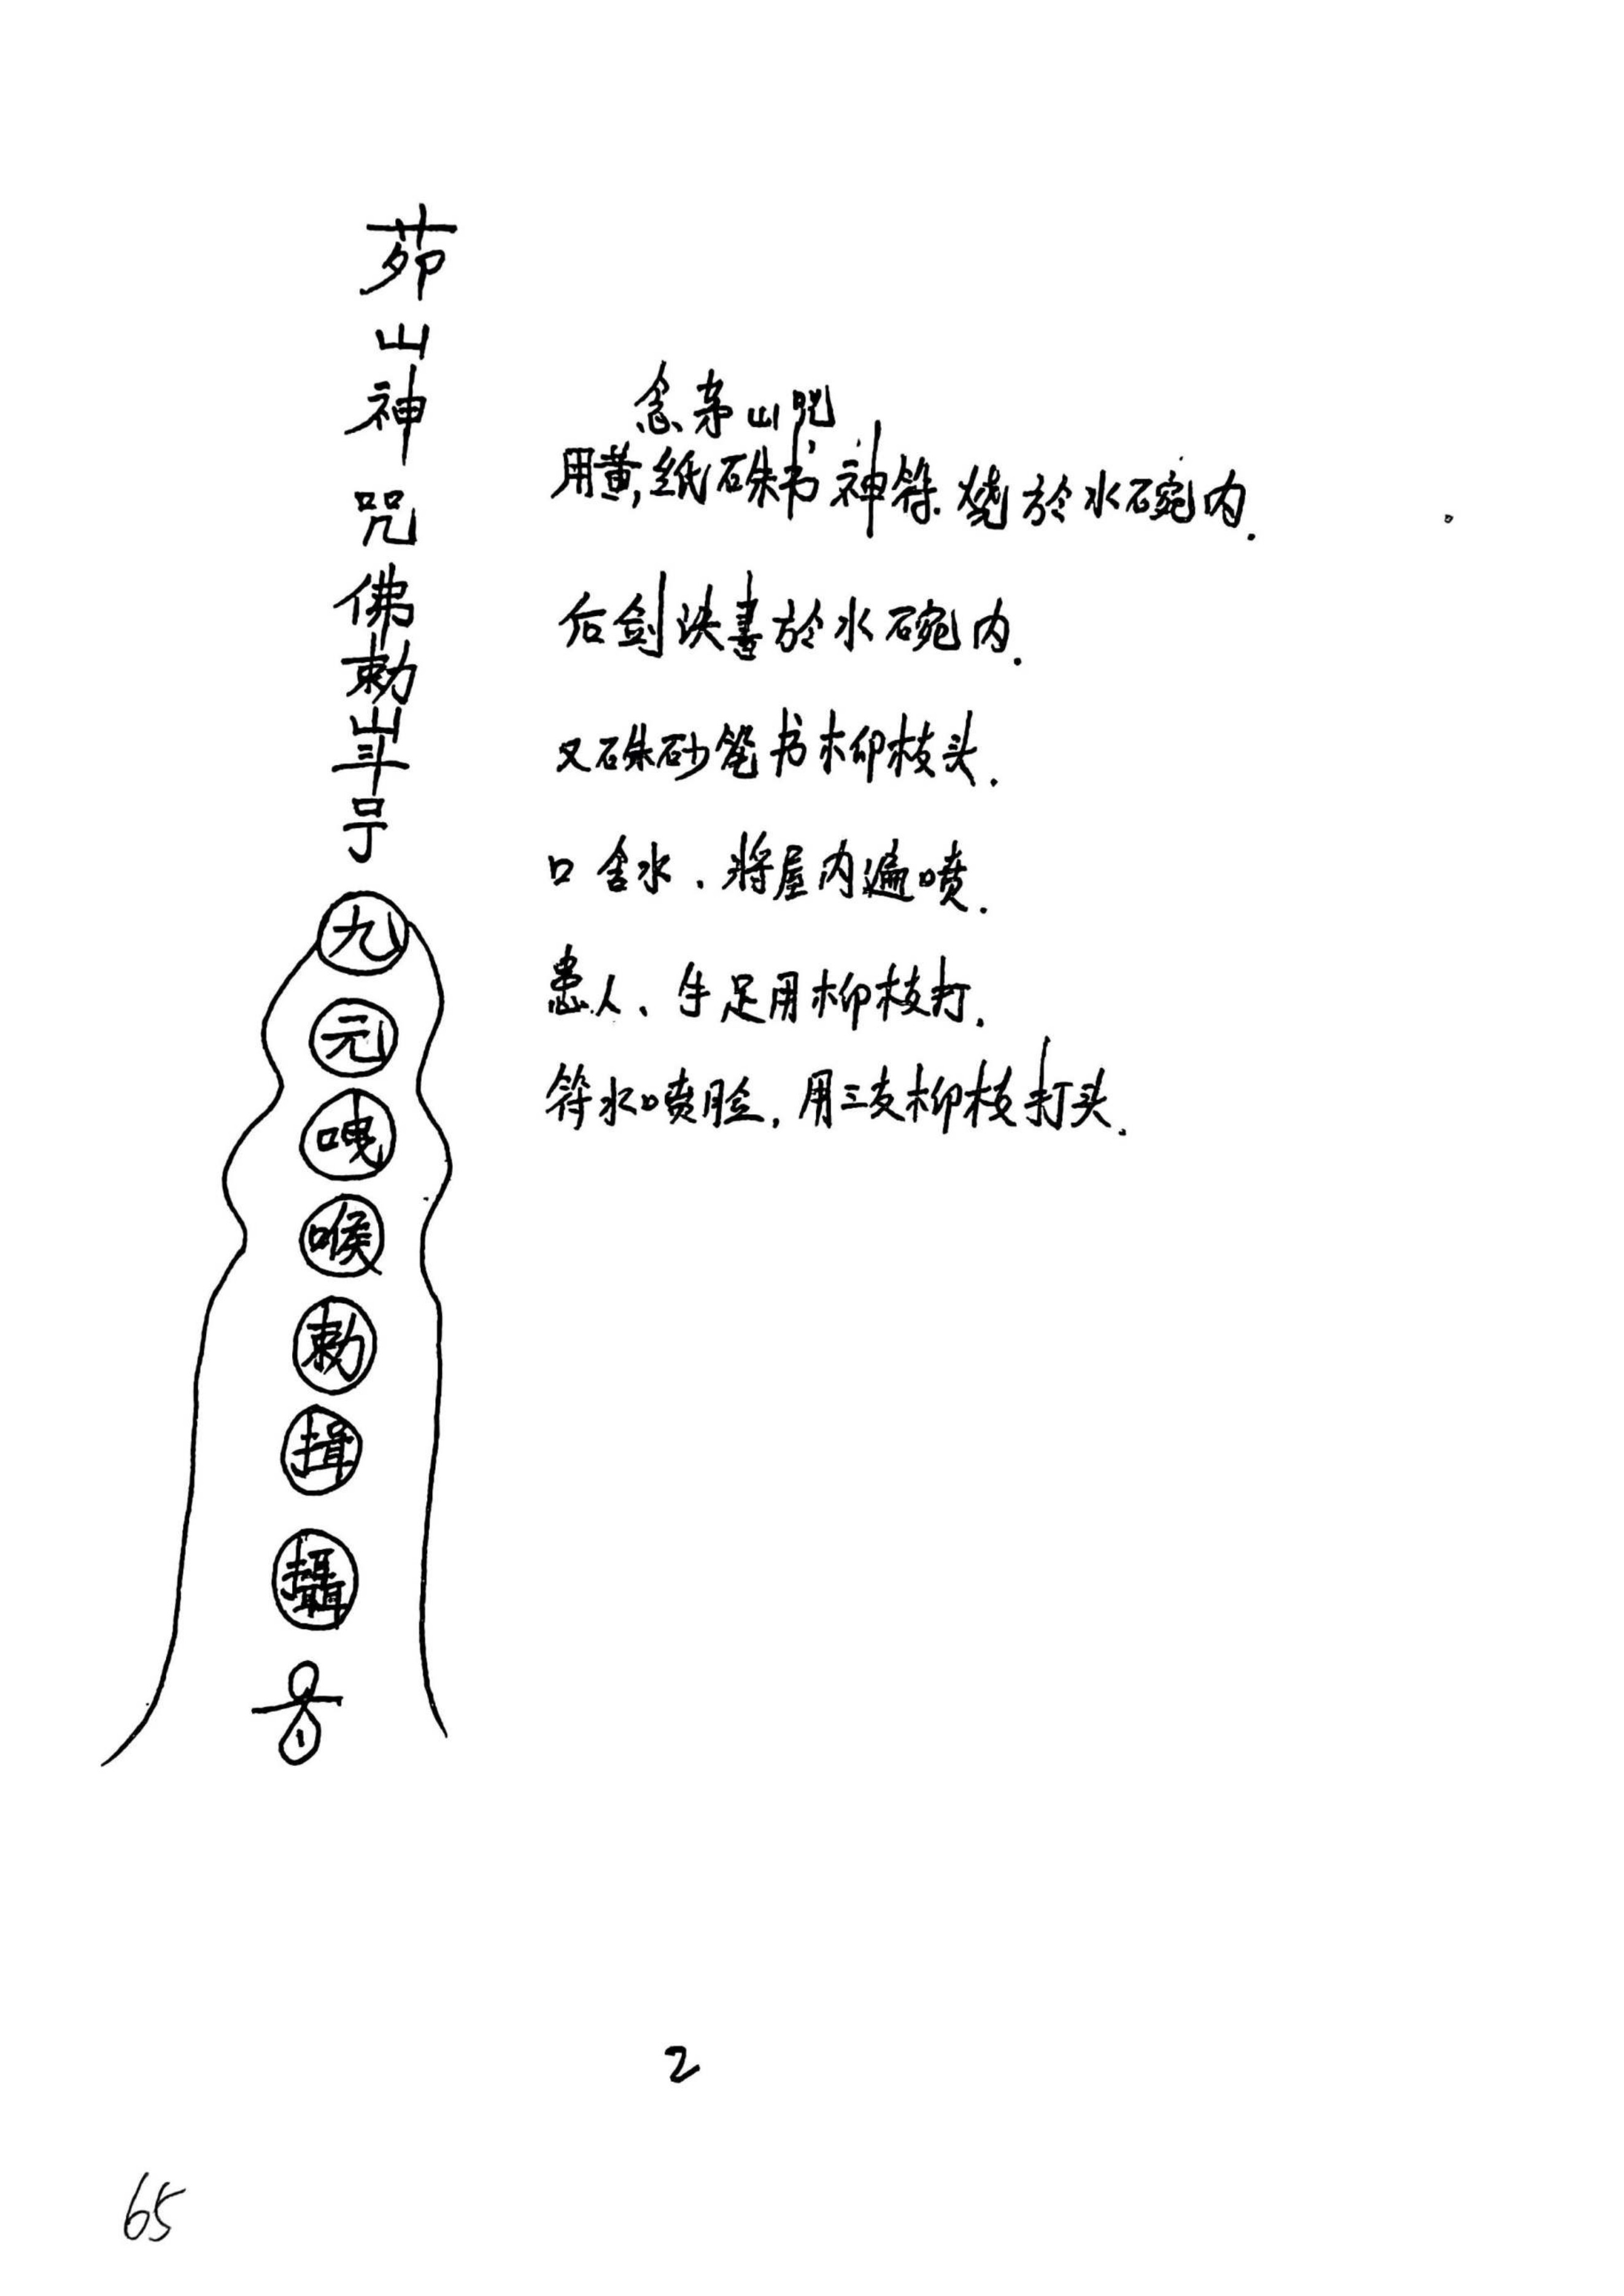 茆山神咒佛勅山斗号
九
元
㖿
喉
勅
揖
攝
念茅山咒
用黄纸硃书神符.烧於水碗内.
后剑诀書於水碗内.
又硃砂笔书柳枝头.
口含水.将屋内遍喷.
患人、手足用柳枝打.
符水喷脸,用三支柳枝打头.
2
65